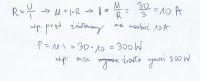 R = U/I → U = I·R → I = U/R = 30/3 = 10 A
odp. prąd źródłowy ma wartość 10A
P = U·I = 30·10 = 300W
odp: moc wynosi 300W